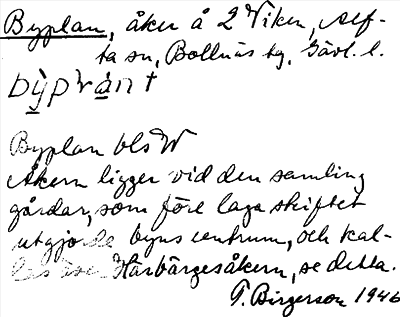 Byplan, åker å 2 Viken, Alf-
ta sn, Bollnäs tg, Gävl. l.
býprànt
Byplan bls W
Åkern ligger vid den samling
gårdar, som före laga skiftet
utgjorde byns centrum, och kal-
las även Härbärgesåkern, se detta.
T. Birgerson 1946